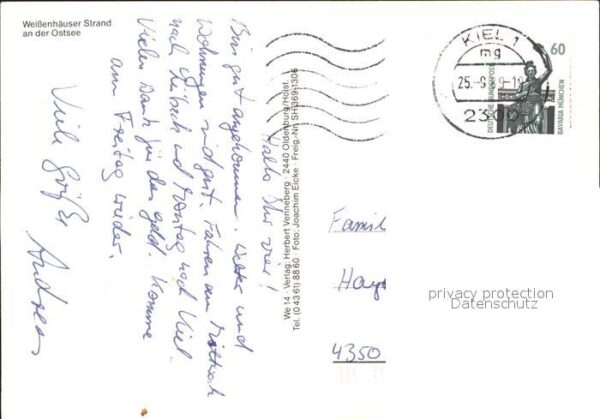 Weißenhäuser Strand
an der Ostsee
Hallo Ihr vier!
Bin gut angekommen. Wetter und
Wohnungen sind gut. Fahren am Mittwoch
nach Lübeck und Montag nach Kiel.
Vielen Dank für das Geld. Komme
am Freitag wieder.
Viele Grüße Andreas
We 14 · Verlag: Herbert Venneberg · 2440 Oldenburg/Holst.
Tel. (0 43 61) 88 60 · Foto: Joachim Eicke · Freig.-Nr. SH 369-1306
KIEL 1
mg
2300
60
DEUTSCHE BUNDESPOST
BAVARIA MÜNCHEN
Famil
Hay
4350
privacy protection
Datenschutz